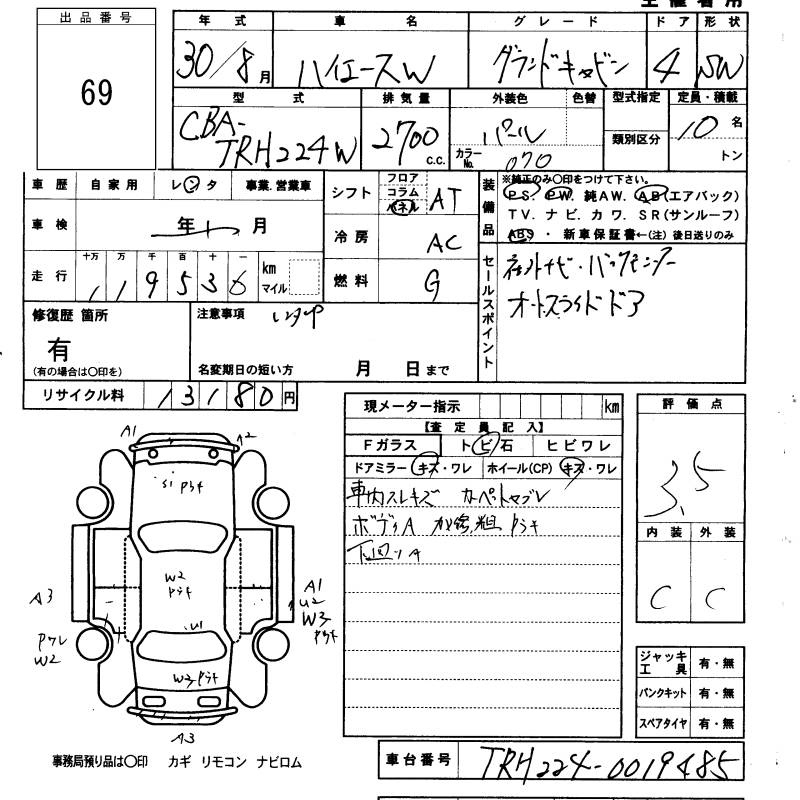 出品番号
69
年式 車名 グレード ドア 形状
30/8月 ハイエースW グランドキャビン 4 SW
型式 排気量 外装色 色替 型式指定 定員・積載
CBA-TRH224W 2700 c.c. パール 類別区分 10 名
カラーNo. 070 トン
車歴 自家用 レンタ 事業.営業車
車検 年 月
走行 十万 万 千 百 十 一
119536 km マイル
シフト フロア コラム パネル AT
冷房 AC
燃料 G
装備品
※純正のみ〇印をつけて下さい。
PS. PW. 純AW. AB(エアバック)
TV. ナビ. カワ. SR(サンルーフ)
ABS ・ 新車保証書←(注) 後日送りのみ
セールスポイント
オートスライドドア
修復歴 箇所
有
(有の場合は〇印を)
注意事項
名変期日の短い方 月 日まで
リサイクル料 13180円
現メーター指示 km
【査定員記入】
Fガラス トビ石 ヒビワレ
ドアミラー キズ・ワレ ホイール(CP) キズ・ワレ
車内スレキズ カーペットヤブレ
ボディA
下回りA
評価点
3.5
内装 外装
C C
ジャッキ工具 有・無
パンクキット 有・無
スペアタイヤ 有・無
A1 A2
S1
W2
U1
A3
A1
U2
W3
ワレ
W2
W3
A3
事務局預り品は〇印 カギ リモコン ナビロム
車台番号 TRH224-0019485